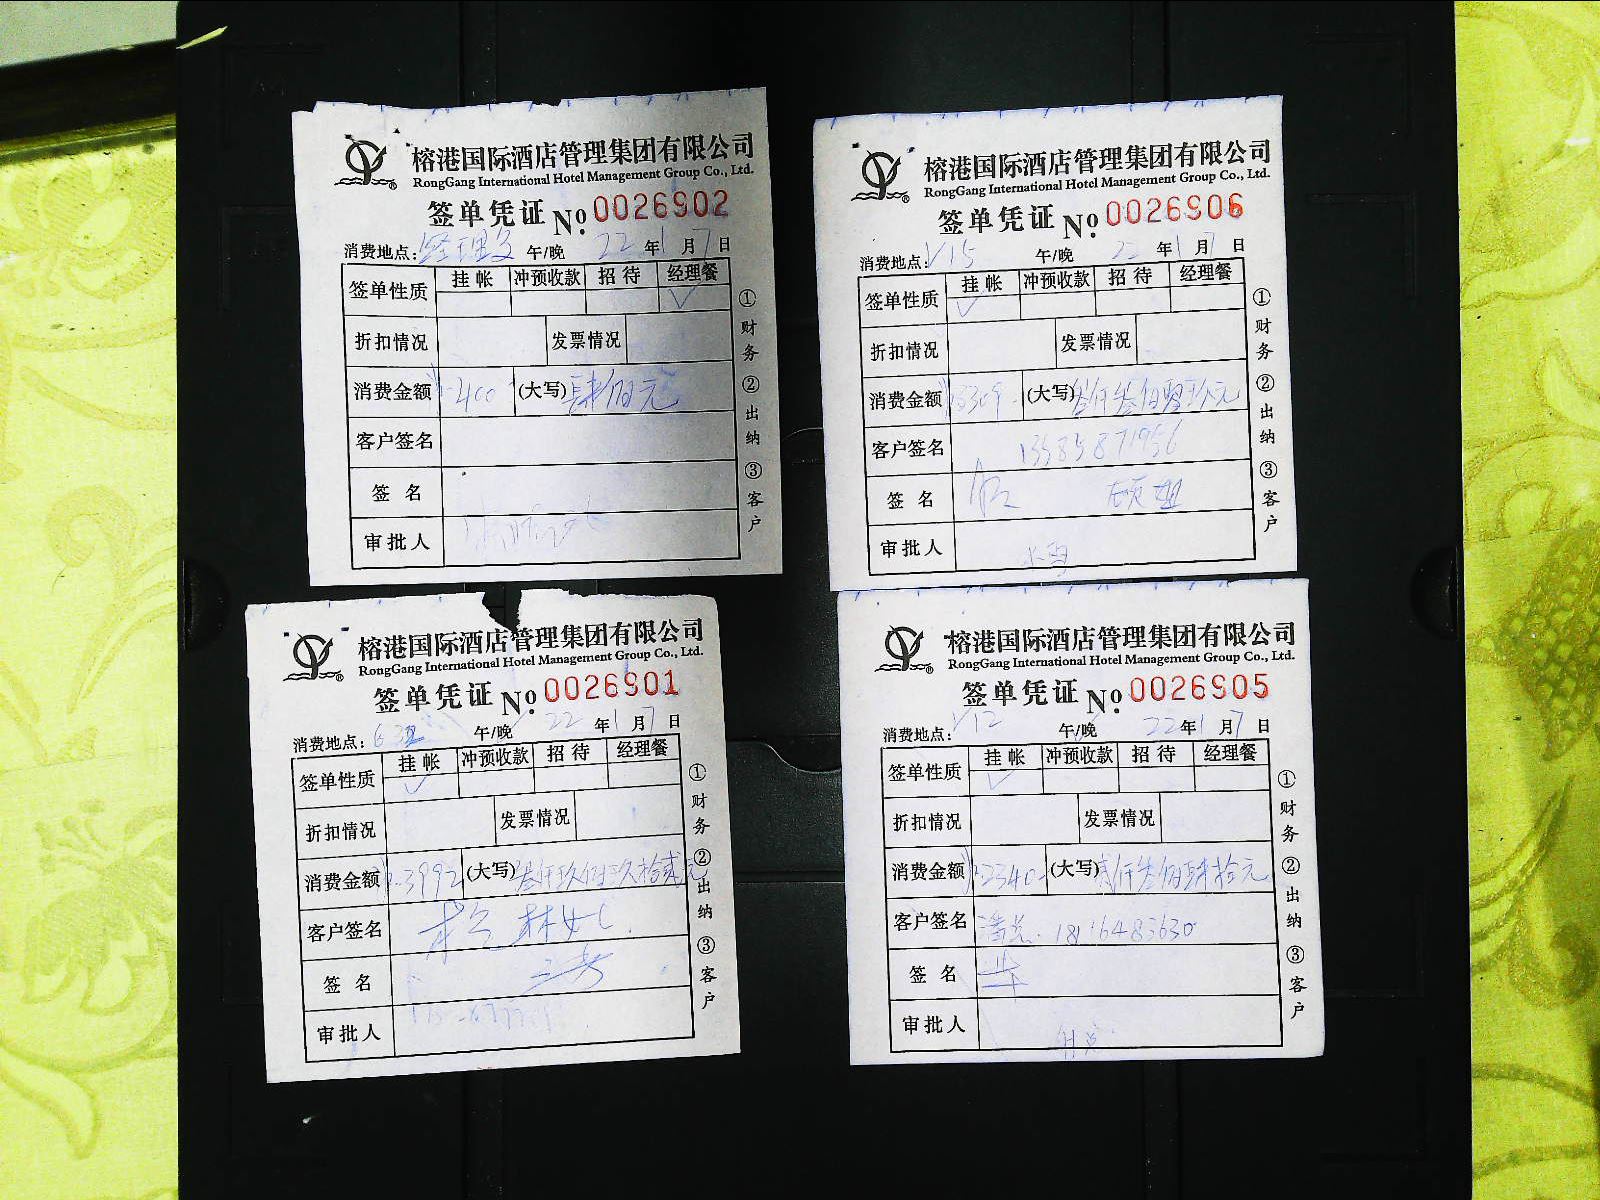 榕港国际酒店管理集团有限公司
RongGang International Hotel Management Group Co., Ltd.
签单凭证 No. 0026902
消费地点: 经理 午/晚 22 年 1 月 7 日
签单性质 挂帐 冲预收款 招待 经理餐 ✓
折扣情况 发票情况
消费金额 400 (大写) 肆佰元
客户签名
签名
审批人
①财务 ②出纳 ③客户
榕港国际酒店管理集团有限公司
RongGang International Hotel Management Group Co., Ltd.
签单凭证 No. 0026906
消费地点: V15 午/晚 22 年 1 月 7 日
签单性质 挂帐 ✓ 冲预收款 招待 经理餐
折扣情况 发票情况
消费金额 3309 (大写) 叁仟叁佰零玖元
客户签名 13585871956
签名 顾姐
审批人
①财务 ②出纳 ③客户
榕港国际酒店管理集团有限公司
RongGang International Hotel Management Group Co., Ltd.
签单凭证 No. 0026901
消费地点: 午/晚 22 年 1 月 7 日
签单性质 挂帐 ✓ 冲预收款 招待 经理餐
折扣情况 发票情况
消费金额 3992 (大写) 叁仟玖佰玖拾贰元
客户签名
签名
审批人
①财务 ②出纳 ③客户
榕港国际酒店管理集团有限公司
RongGang International Hotel Management Group Co., Ltd.
签单凭证 No. 0026905
消费地点: V12 午/晚 22 年 1 月 7 日
签单性质 挂帐 ✓ 冲预收款 招待 经理餐
折扣情况 发票情况
消费金额 2340 (大写) 贰仟叁佰肆拾元
客户签名 潘总 18116483630
签名 华
审批人
①财务 ②出纳 ③客户